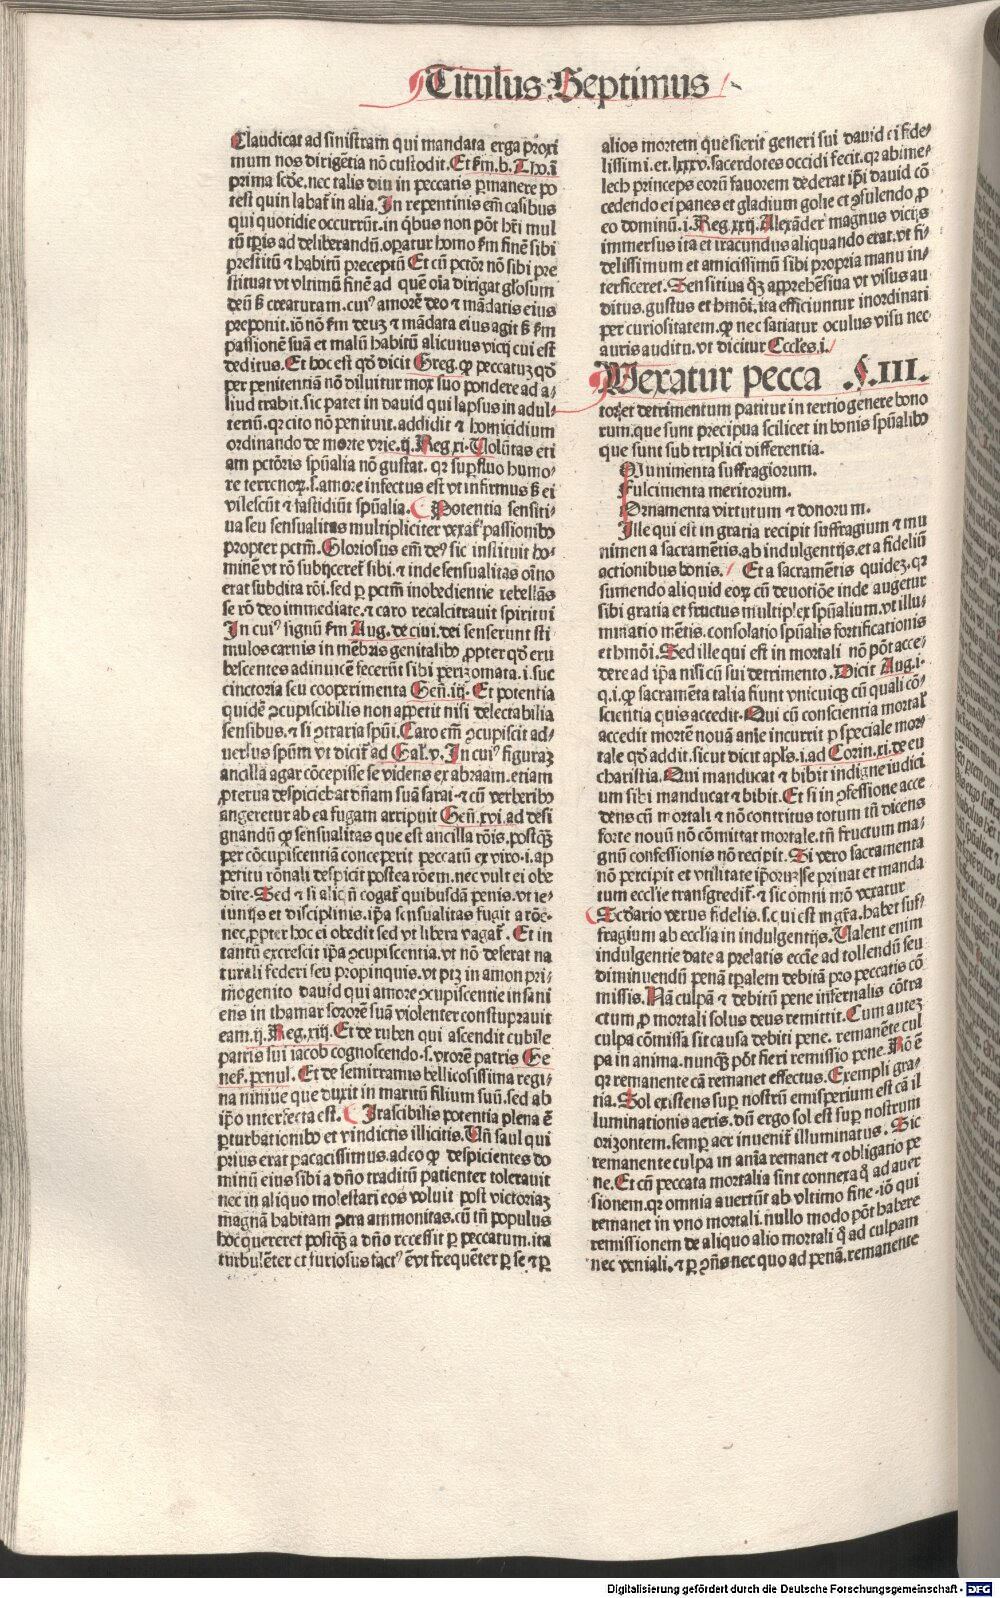 Titulus Septimus
Claudicat ad sinistram qui mandata erga proxi
mum nos dirigẽtia nõ custodit. Et s̃m. b. Tho. i
prima scďe. nec talis diu in peccatis p̱manere po
test quin labat̃ in alia. In repentinis em̃ casibus
qui quotidie occurrũt. in q̃bus non põt hr̃i mul
tũ tp̃is ad deliberandũ. op̱atur homo s̃m finẽ sibi
prestitũ ⁊ habitũ preceptũ Et cũ pctõr nõ sibi pre
stituat vt vltimũ finẽ ad quẽ oĩa dirigat glosum
deũ s̃ creaturam. cuiꝰ amorẽ deo ⁊ mãdatis eius
preponit. iõ nõ s̃m deuꝫ ⁊ mãdata eius agit s̃ s̃m
passionẽ suã et malũ habitũ alicuius vicij cui est
deditus. Et hoc est qď dicit Greg. ꝙ peccatuꝫ qď
per penitentiã nõ diluitur mox suo pondere ad a⸗
liud trahit. sic patet in dauid qui lapsus in adul⸗
teriũ. qꝛ cito nõ penituit. addidit ⁊ homicidium
ordinando de morte vrie. ij. Reg. xi. Volũtas eti
am pctõris sp̃ualia nõ gustat. qꝛ sup̱fluo humo⸗
re terrenoꝝ. s. amore infectus est vt infirmus s̃ ei
vilescũt ⁊ fastidiũt sp̃ualia. Potentia sensiti⸗
ua seu sensualitas multipliciter vexat̃ passionibꝰ
propter pctm̃. Gloriosus em̃ deꝰ sic instituit ho⸗
minẽ vt rõ subijceret̃ sibi. ⁊ inde sensualitas oĩno
erat subdita rõi. sed p̱ pctm̃ inobedientie rebellãs
se rõ deo immediate. ⁊ caro recalcitrauit spiritui
In cuiꝰ signũ s̃m Aug. de ciui. dei senserunt sti
mulos carnis in mẽbris genitalibꝰ ꝓpter qď eru
bescentes adinuicẽ fecerũt sibi perizomata. i. suc
cinctoria seu cooperimenta Geñ. iij. Et potentia
quidẽ ꝯcupiscibilis non app̱etit nisi delectabilia
sensibus. ⁊ si ꝯtraria sp̃ui. Caro em̃ ꝯcupiscit ad⸗
uersus sp̃um vt dicit̃ ad Gal. v. In cuiꝰ figuraꝫ
ancilla agar cõcepisse se videns ex abraam. etiam
ꝓterua despiciebat dñam suã sarai. ⁊ cũ verberibꝰ
angeretur ab ea fugam arripuit Geñ. xvi. ad desi
gnandũ ꝙ sensualitas que est ancilla rõis. postꝙ̃
per cõcupiscentiã conceperit peccatũ ex viro. i. ap
petitu rõnali despicit postea rõem. nec vult ei obe
dire. Sed ⁊ si aliqñ cogat̃ quibusdã penis. vt ie⸗
iunijs et disciplinis. ip̃a sensualitas fugit a rõe.
nec ꝓpter hoc ei obedit sed vt libera vagat̃. Et in
tantũ excrescit ip̃a ꝯcupiscentia. vt nõ deferat na
turali federi seu propinquis. vt ptꝫ in amon pri⸗
mogenito dauid qui amore ꝯcupiscentie insani
ens in thamar sororẽ suã violenter constuprauit
eam. ij. Reg. xiij. Et de ruben qui ascendit cubile
patris sui iacob cognoscendo. s. vxorẽ patris Ge
nes̃. penul. Et de semirramis bellicosissima regi⸗
na niniue que duxit in maritũ filium suũ. sed ab
ip̃o interfecta est. Irascibilis potentia plena ẽ
p̱turbationibꝰ et vindictis illicitis. Vñ saul qui
prius erat pacacissimus. adeo ꝙ despicientes do
minũ eius sibi a dño traditũ patienter tolerauit
nec in aliquo molestari eos voluit post victoriaꝫ
magnã habitam ꝯtra ammonitas. cũ tñ populus
hoc quereret postꝙ̃ a dño recessit p̱ peccatum. ita
turbulẽter et furiosus factꝰ ẽ vt frequẽter p̱ se ⁊ p̱
alios mortem quesierit generi sui dauid ei fide⸗
lissimi. et. lxxxv. sacerdotes occidi fecit. qꝛ abime⸗
lech princeps eorũ fauorem dederat ip̃i dauid cõ
cedendo ei panes et gladium golie et ꝯsulendo ꝓ
eo dominũ. i. Reg. xxij. Alexãder magnus vicijs
immersus ita et iracundus aliquando erat. vt fi⸗
delissimum et amicissimũ sibi propria manu in⸗
terficeret. Sensitiua qꝫ app̱rehẽsiua vt visus au
ditus. gustus et hmõi. ita efficiuntur inordinati
per curiositatem. ꝙ nec satiatur oculus visu nec
auris auditu. vt dicitur Eccles. i.
Vexatur pecca .§.III.
tor et detrimentum patitur in tertio genere bono
rum. que sunt precipua scilicet in bonis sp̃ualibꝰ
que sunt sub triplici differentia.
Munimenta suffragiorum.
Fulcimenta meritorum.
Ornamenta virtutum ⁊ donorum.
Ille qui est in gratia recipit suffragium ⁊ mu
nimen a sacramẽtis. ab indulgentijs. et a fideliũ
actionibus bonis. Et a sacramẽtis quideꝫ. qꝛ
sumendo aliquid eoꝝ cũ deuotiõe inde augetur
sibi gratia et fructus multiplex sp̃ualium. vt illu⸗
minatio mẽtis. consolatio sp̃ualis fortificationis
et hmõi. Sed ille qui est in mortali nõ põt acce⸗
dere ad ip̃a nisi cũ sui detrimento. Dicit Aug. i.
q. i. ꝙ sacramẽta talia fiunt vnicuiqꝫ cũ quali cõ⸗
scientia quis accedit. Qui cũ conscientia mortal̃
accedit mortẽ nouã aĩe incurrit p̱ speciale mor⸗
tale qď addit. sicut dicit apl̃s. i. ad Corin. xi. de eu
charistia. Qui manducat ⁊ bibit indigne iudici
um sibi manducat ⁊ bibit. Et si in ꝯfessione acce
dens cũ mortali ⁊ nõ contritus totum tñ dicens
forte nouũ nõ cõmittat mortale. tñ fructum ma⸗
gnũ confessionis nõ recipit. Si vero sacramenta
nõ percipit et vtilitate ip̃oruꝫ se priuat et manda
tum ecclie transgredit̃. ⁊ sic omni mõ vexatur
Secďario verus fidelis. s. cui est in gr̃a. habet suf⸗
fragium ab ecclia in indulgentijs. Valent enim
indulgentie date a prelatis eccĩe ad tollendũ seu
diminuendũ penã tp̃alem debitã pro peccatis cõ
missis. Nã culpã ⁊ debitũ pene infernalis cõtra
ctum ꝓ mortali solus deus remittit. Cum auteꝫ
culpa cõmissa sit causa debiti pene. remanẽte cul
pa in anima. nunqꝫ põt fieri remissio pene. Rõ ẽ
qꝛ remanente cã remanet effectus. Exempli gra⸗
tia. Sol existens sup̱ nostrũ emisperium est cã il
luminationis aeris. dũ ergo sol est sup̱ nostrum
orizontem. semp̱ aer inuenit̃ illuminatus. Sic
remanente culpa in aĩa remanet ⁊ obligatio pe
ne. Et cũ peccata mortalia sint connexa q̃ ad auer
sionem. qꝛ omnia auertũt ab vltimo fine. iõ qui
remanet in vno mortali. nullo modo põt habere
remissionem de aliquo alio mortali q̃ ad culpam
nec veniali. ⁊ p̱ ꝯñs nec quo ad penã. remanente
Digitalisierung gefördert durch die Deutsche Forschungsgemeinschaft - DFG